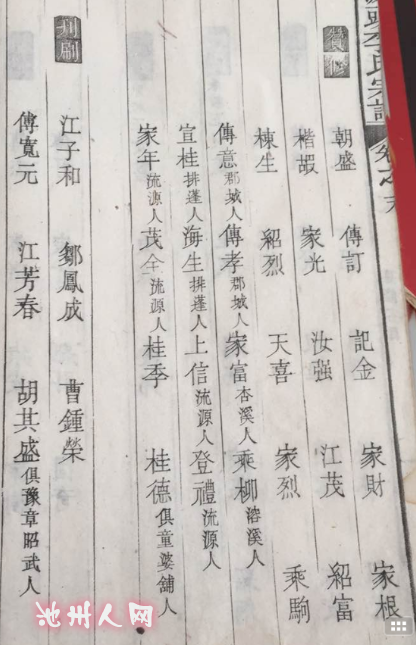 頭李氏宗譜 卷之末
贊修
朝盛 傳訂 記金 家財 家根
楷嘏 家光 汝強 江茂 紹富
棟生 紹烈 天喜 家烈 乘駒
傳意郡城人 傳孝郡城人 家富杏溪人 乘柳溶溪人
宣桂排蓬人 海生排蓬人 上信流源人 登禮流源人
家年流源人 茂全流源人 桂季 桂德俱童婆舖人
刊刷
江子和 鄒鳳成 曹鍾榮
傅寬元 江芳春 胡其盛俱豫章昭武人
池州人网